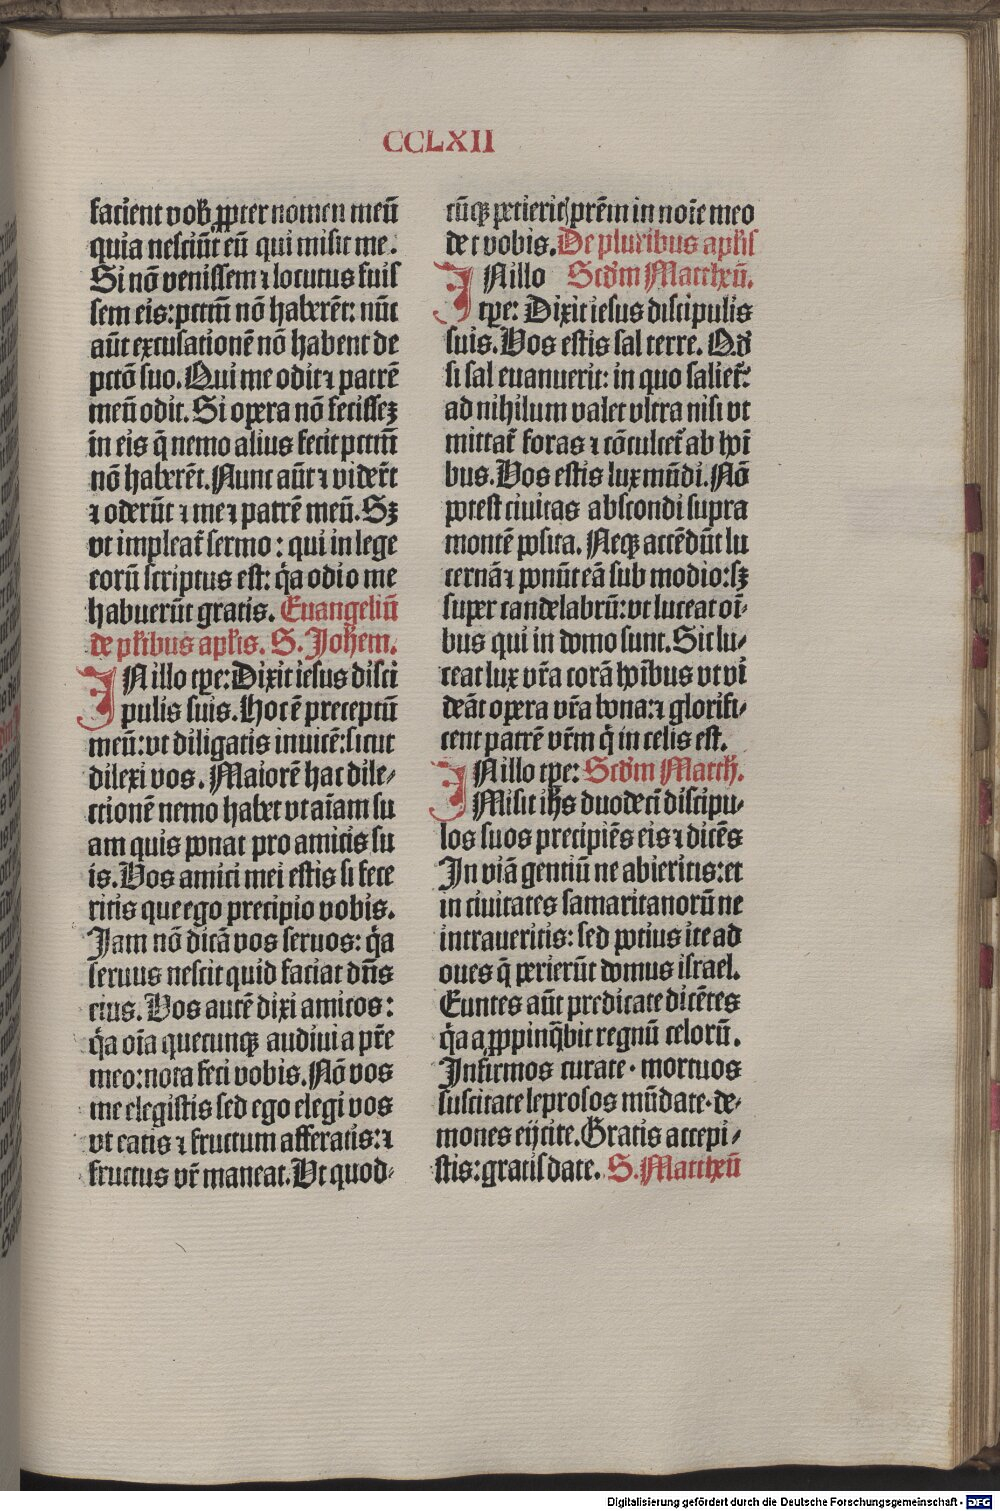 CCLXII
facient vob ꝓpter nomen meū
quia nesciūt eū qui misit me.
Si nō venissem ⁊ locutus fuis
sem eis: pctm̄ nō haberēt: nūc
aūt excusationē nō habent de
pctō suo. Qui me odit ⁊ patrē
meū odit. Si opera nō fecissēꝫ
in eis q̄ nemo alius fecit pctm̄
nō haberēt. Nunc aūt ⁊ viderūt
⁊ oderūt ⁊ me ⁊ patrē meū. Sꝫ
vt impleat̄ sermo: qui in lege
eorū scriptus est: q̇a odio me
habuerūt gratis. Euangeliū
de plibus aplis. S. Johem.
IN illo tp̄e: Dixit iesus disci
pulis suis. Hoc ē preceptū
meū: vt diligatis inuicē: sicut
dilexi vos. Maiorē hac dile⸗
ctionē nemo habet vt aīam su
am quis ponat pro amicis su
is. Vos amici mei estis si fece
ritis que ego precipio vobis.
Jam nō dicā vos seruos: q̇a
seruus nescit quid faciat dn̄s
eius. Vos autē dixi amicos:
q̇a oīa quecunqꝫ audiui a pr̄e
meo: nota feci vobis. Nō vos
me elegistis sed ego elegi vos
vt eatis ⁊ fructum afferatis: ⁊
fructus vr̄ maneat. Vt quod⸗
cūqꝫ petieritꝭ prēm in noīe meo
det vobis. De pluribus aplis
IN illo Scd̄m Mattheū.
tp̄e: Dixit iesus discipulis
suis. Vos estis sal terre. Qd̄
si sal euanuerit: in quo saliet̄:
ad nihilum valet vltra nisi vt
mittat̄ foras ⁊ cōculcet̄ ab hoī
bus. Vos estis lux mūdi. Nō
potest ciuitas abscondi supra
montē posita. Neqꝫ accēdūt lu
cernā ⁊ ponūt eā sub modio: sꝫ
super candelabrū: vt luceat oī⸗
bus qui in domo sunt. Sic lu⸗
ceat lux vr̄a corā hoībus vt vi
deāt opera vr̄a bona: ⁊ glorifi⸗
cent patrē vr̄m q̇ in celis est.
IN illo tp̄e: Scd̄m Matth.
Misit ihs̄ duodecī discipu⸗
los suos precipiēs eis ⁊ dicēs
In viā gentiū ne abieritis: et
in ciuitates samaritanorū ne
intraueritis: sed potius ite ad
oues q̄ perierūt domus israel.
Euntes aūt predicate dicētes
q̇a aꝓpinq̄bit regnū celorū.
Infirmos curate. mortuos
suscitate leprosos mūdate. de⸗
mones eijcite. Gratis accepi⸗
stis: gratis date. S. Mattheū
Digitalisierung gefördert durch die Deutsche Forschungsgemeinschaft - DFG